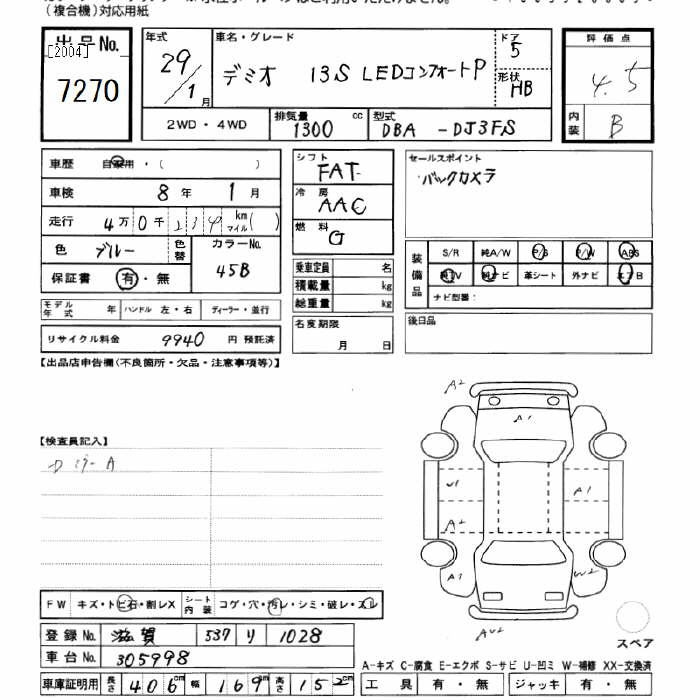 (複合機)対応用紙
出品No. 年式 車名・グレード ドア 評価点
[2004] 29/1月 デミオ 13S LEDコンフォートP 5 4.5
7270 形状 HB
2WD・4WD 排気量 1300 cc 型式 DBA -DJ3FS 内装 B
車歴 自家用・( ) シフト FAT セールスポイント
車検 8年 1月 冷房 AAC バックカメラ
走行 4万0千234 km マイル( ) 燃料 G
色 ブルー 色替 カラーNo. 45B
保証書 有・無
乗車定員 名
積載量 kg
総重量 kg
装備品 S/R 純A/W P/S P/W ABS
純TV 純ナビ 革シート 外ナビ エアB
ナビ型番:
モデル年式 年 ハンドル 左・右 ディーラー・並行
名変期限 月 日
後日品
リサイクル料金 9940 円 預託済
【出品店申告欄(不良箇所・欠品・注意事項等)】
A2
A1
【検査員記入】
A
U1 A1
A2
A1 W2
AU2
FW キズ・トビ石・割レX シート内装 コゲ・穴・汚レ・シミ・破レ・スレ
登録No. 滋賀 537 り 1028
スペア
車台No. 305998
A-キズ C-腐食 E-エクボ S-サビ U-凹ミ W-補修 XX-交換済
車庫証明用 長さ 406cm 幅 169cm 高さ 152cm
工具 有・無 ジャッキ 有・無